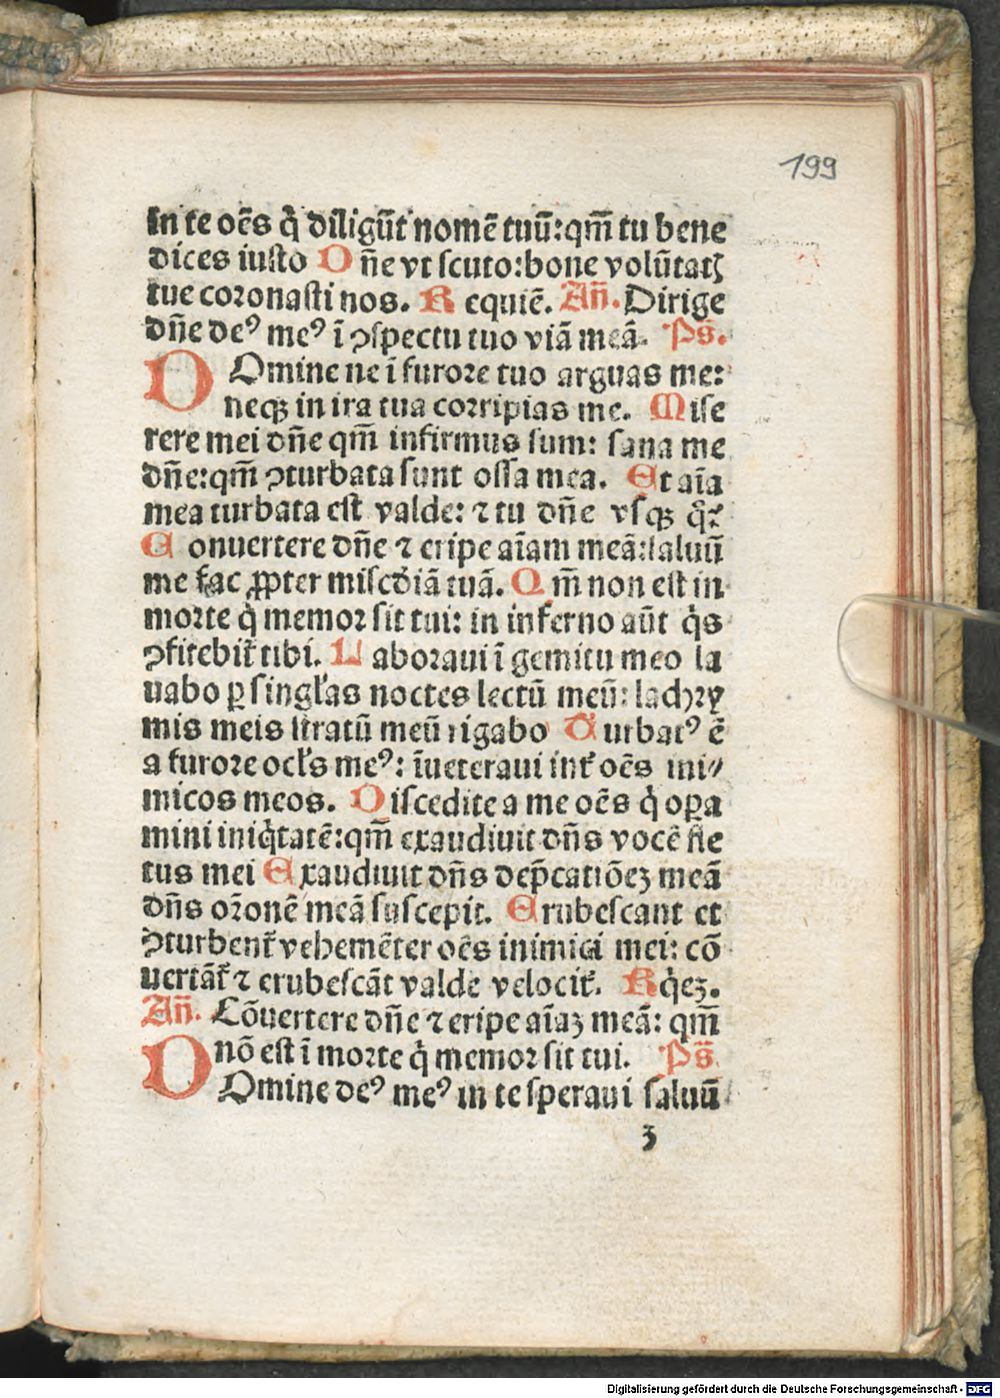 199
in te oēs q̇ diligūt nomē tuū: qm̄ tu bene
dices iusto Dn̄e vt scuto: bone volūtatꝫ
tue coronasti nos. Requiē. An̄. Dirige
dn̄e deꝰ meꝰ ī ꝯspectu tuo viā meā. Ps̄.
DOmine ne ī furore tuo arguas me:
neqꝫ in ira tua corripias me. Mise
rere mei dn̄e qm̄ infirmus sum: sana me
dn̄e: qm̄ ꝯturbata sunt ossa mea. Et aīa
mea turbata est valde: ⁊ tu dn̄e vsqꝫ q̊ꝛ
Conuertere dn̄e ⁊ eripe aīam meā: saluū
me fac ꝓpter miscdiā tuā. Qm̄ non est in
morte q̇ memor sit tui: in inferno aūt q̇s
ꝯfitebit̄ tibi. Laboraui ī gemitu meo la
uabo ꝑ singl̄as noctes lectū meū: lachry
mis meis stratū meū rigabo Turbatꝰ ē
a furore ocl̄s meꝰ: īueteraui int̄ oēs ini⸗
micos meos. Discedite a me oēs q̇ oꝑa
mini iniq̇tatē: qm̄ exaudiuit dn̄s vocē fle
tus mei Exaudiuit dn̄s dep̄catiōeꝫ meā
dn̄s or̄onē meā suscepit. Erubescant et
ꝯturbent̄ vehemēter oēs inimici mei: cō
uertāt̄ ⁊ erubescāt valde velocit̄. Rq̇eꝫ.
An̄. Cōuertere dn̄e ⁊ eripe aīaꝫ meā: qm̄
nō est ī morte q̇ memor sit tui. Ps̄
DOmine deꝰ meꝰ in te speraui saluū
ʒ
Digitalisierung gefördert durch die Deutsche Forschungsgemeinschaft - DFG